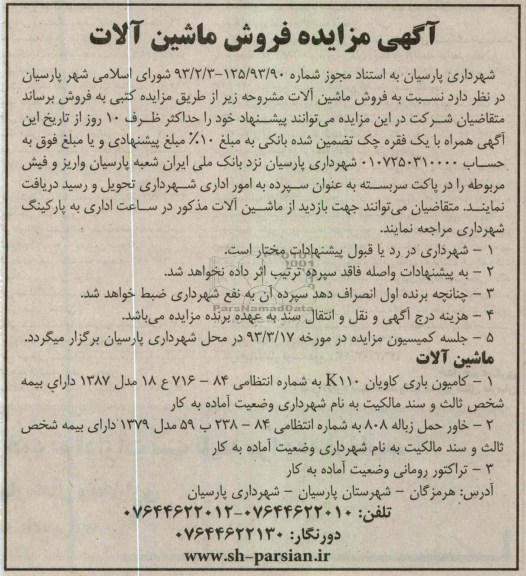 آگهی مزایده فروش ماشین آلات
شهرداری پارسیان به استناد مجوز شماره ۱۲۵/۹۳/۹۰-۹۳/۲/۳ شورای اسلامی شهر پارسیان
در نظر دارد نسبت به فروش ماشین آلات مشروحه زیر از طریق مزایده کتبی به فروش برساند
متقاضیان شرکت در این مزایده می‌توانند پیشنهاد خود را حداکثر ظرف ۱۰ روز از تاریخ این
آگهی همراه با یک فقره چک تضمین شده بانکی به مبلغ ۱۰٪ مبلغ پیشنهادی و یا مبلغ فوق به
حساب ۰۱۰۷۲۵۰۳۱۰۰۰۰ شهرداری پارسیان نزد بانک ملی ایران شعبه پارسیان واریز و فیش
مربوطه را در پاکت سربسته به عنوان سپرده به امور اداری شهرداری تحویل و رسید دریافت
نمایند. متقاضیان می‌توانند جهت بازدید از ماشین آلات مذکور در ساعت اداری به پارکینگ
شهرداری مراجعه نمایند.
۱ – شهرداری در رد یا قبول پیشنهادات مختار است.
۲ – به پیشنهادات واصله فاقد سپرده ترتیب اثر داده نخواهد شد.
۳ – چنانچه برنده اول انصراف دهد سپرده آن به نفع شهرداری ضبط خواهد شد.
ParsNamadData
۴ – هزینه درج آگهی و نقل و انتقال سند به عهده برنده مزایده می‌باشد.
۵ – جلسه کمیسیون مزایده در مورخه ۹۳/۳/۱۷ در محل شهرداری پارسیان برگزار میگردد.
ماشین آلات
۱ – کامیون باری کاویان K۱۱۰ به شماره انتظامی ۸۴ – ۷۱۶ ع ۱۸ مدل ۱۳۸۷ دارای بیمه
شخص ثالث و سند مالکیت به نام شهرداری وضعیت آماده به کار
۲ – خاور حمل زباله ۸۰۸ به شماره انتظامی ۸۴ – ۲۳۸ ب ۵۹ مدل ۱۳۷۹ دارای بیمه شخص
ثالث و سند مالکیت به نام شهرداری وضعیت آماده به کار
۳ – تراکتور رومانی وضعیت آماده به کار
آدرس: هرمزگان – شهرستان پارسیان – شهرداری پارسیان
تلفن: ۰۷۶۴۴۶۲۲۰۱۰-۰۷۶۴۴۶۲۲۰۱۲
دورنگار: ۰۷۶۴۴۶۲۲۱۳۰
www.sh-parsian.ir